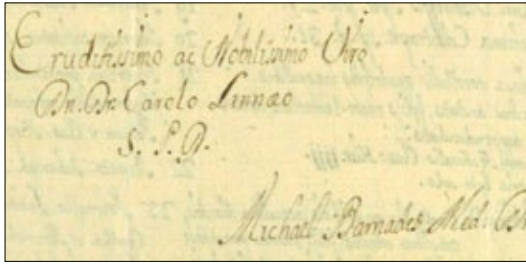 Eruditissimo ac Nobilissimo Viro
Dn. Dn. Carolo Linnæo
S. P. D.
Michaël Barnades Med.